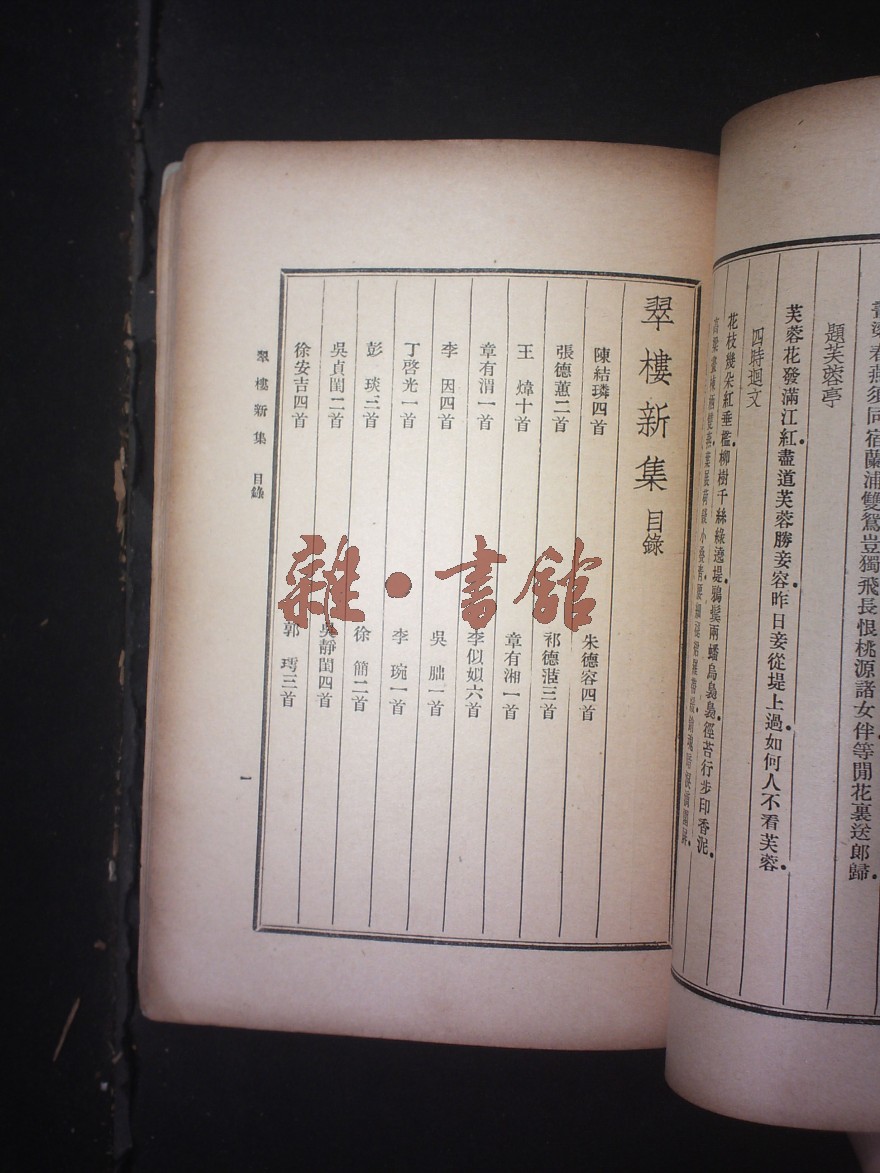 須同宿蘭浦雙鴛豈獨飛長恨桃源諸女伴等閒花裏送郎歸
題芙蓉亭
芙蓉花發滿江紅盡道芙蓉勝妾容昨日妾從堤上過如何人不看芙蓉
四時迴文
花枝幾朵紅垂檻柳樹千絲綠遶堤鴉鬢兩蟠烏裊裊徑苔行步印香泥
高梁畫棟兩雙燕葉展荷錢小疊青
翠樓新集 目錄
陳結璘四首 朱德容四首
張德蕙二首 祁德茝三首
王煒十首 章有湘一首
章有渭一首 李似姒六首
李因四首 吳朏一首
丁啓光一首 李琬一首
彭琰三首 徐簡二首
吳貞閨二首 吳靜閨四首
徐安吉四首 郭三首
翠樓新集 目錄
一
雜·書館